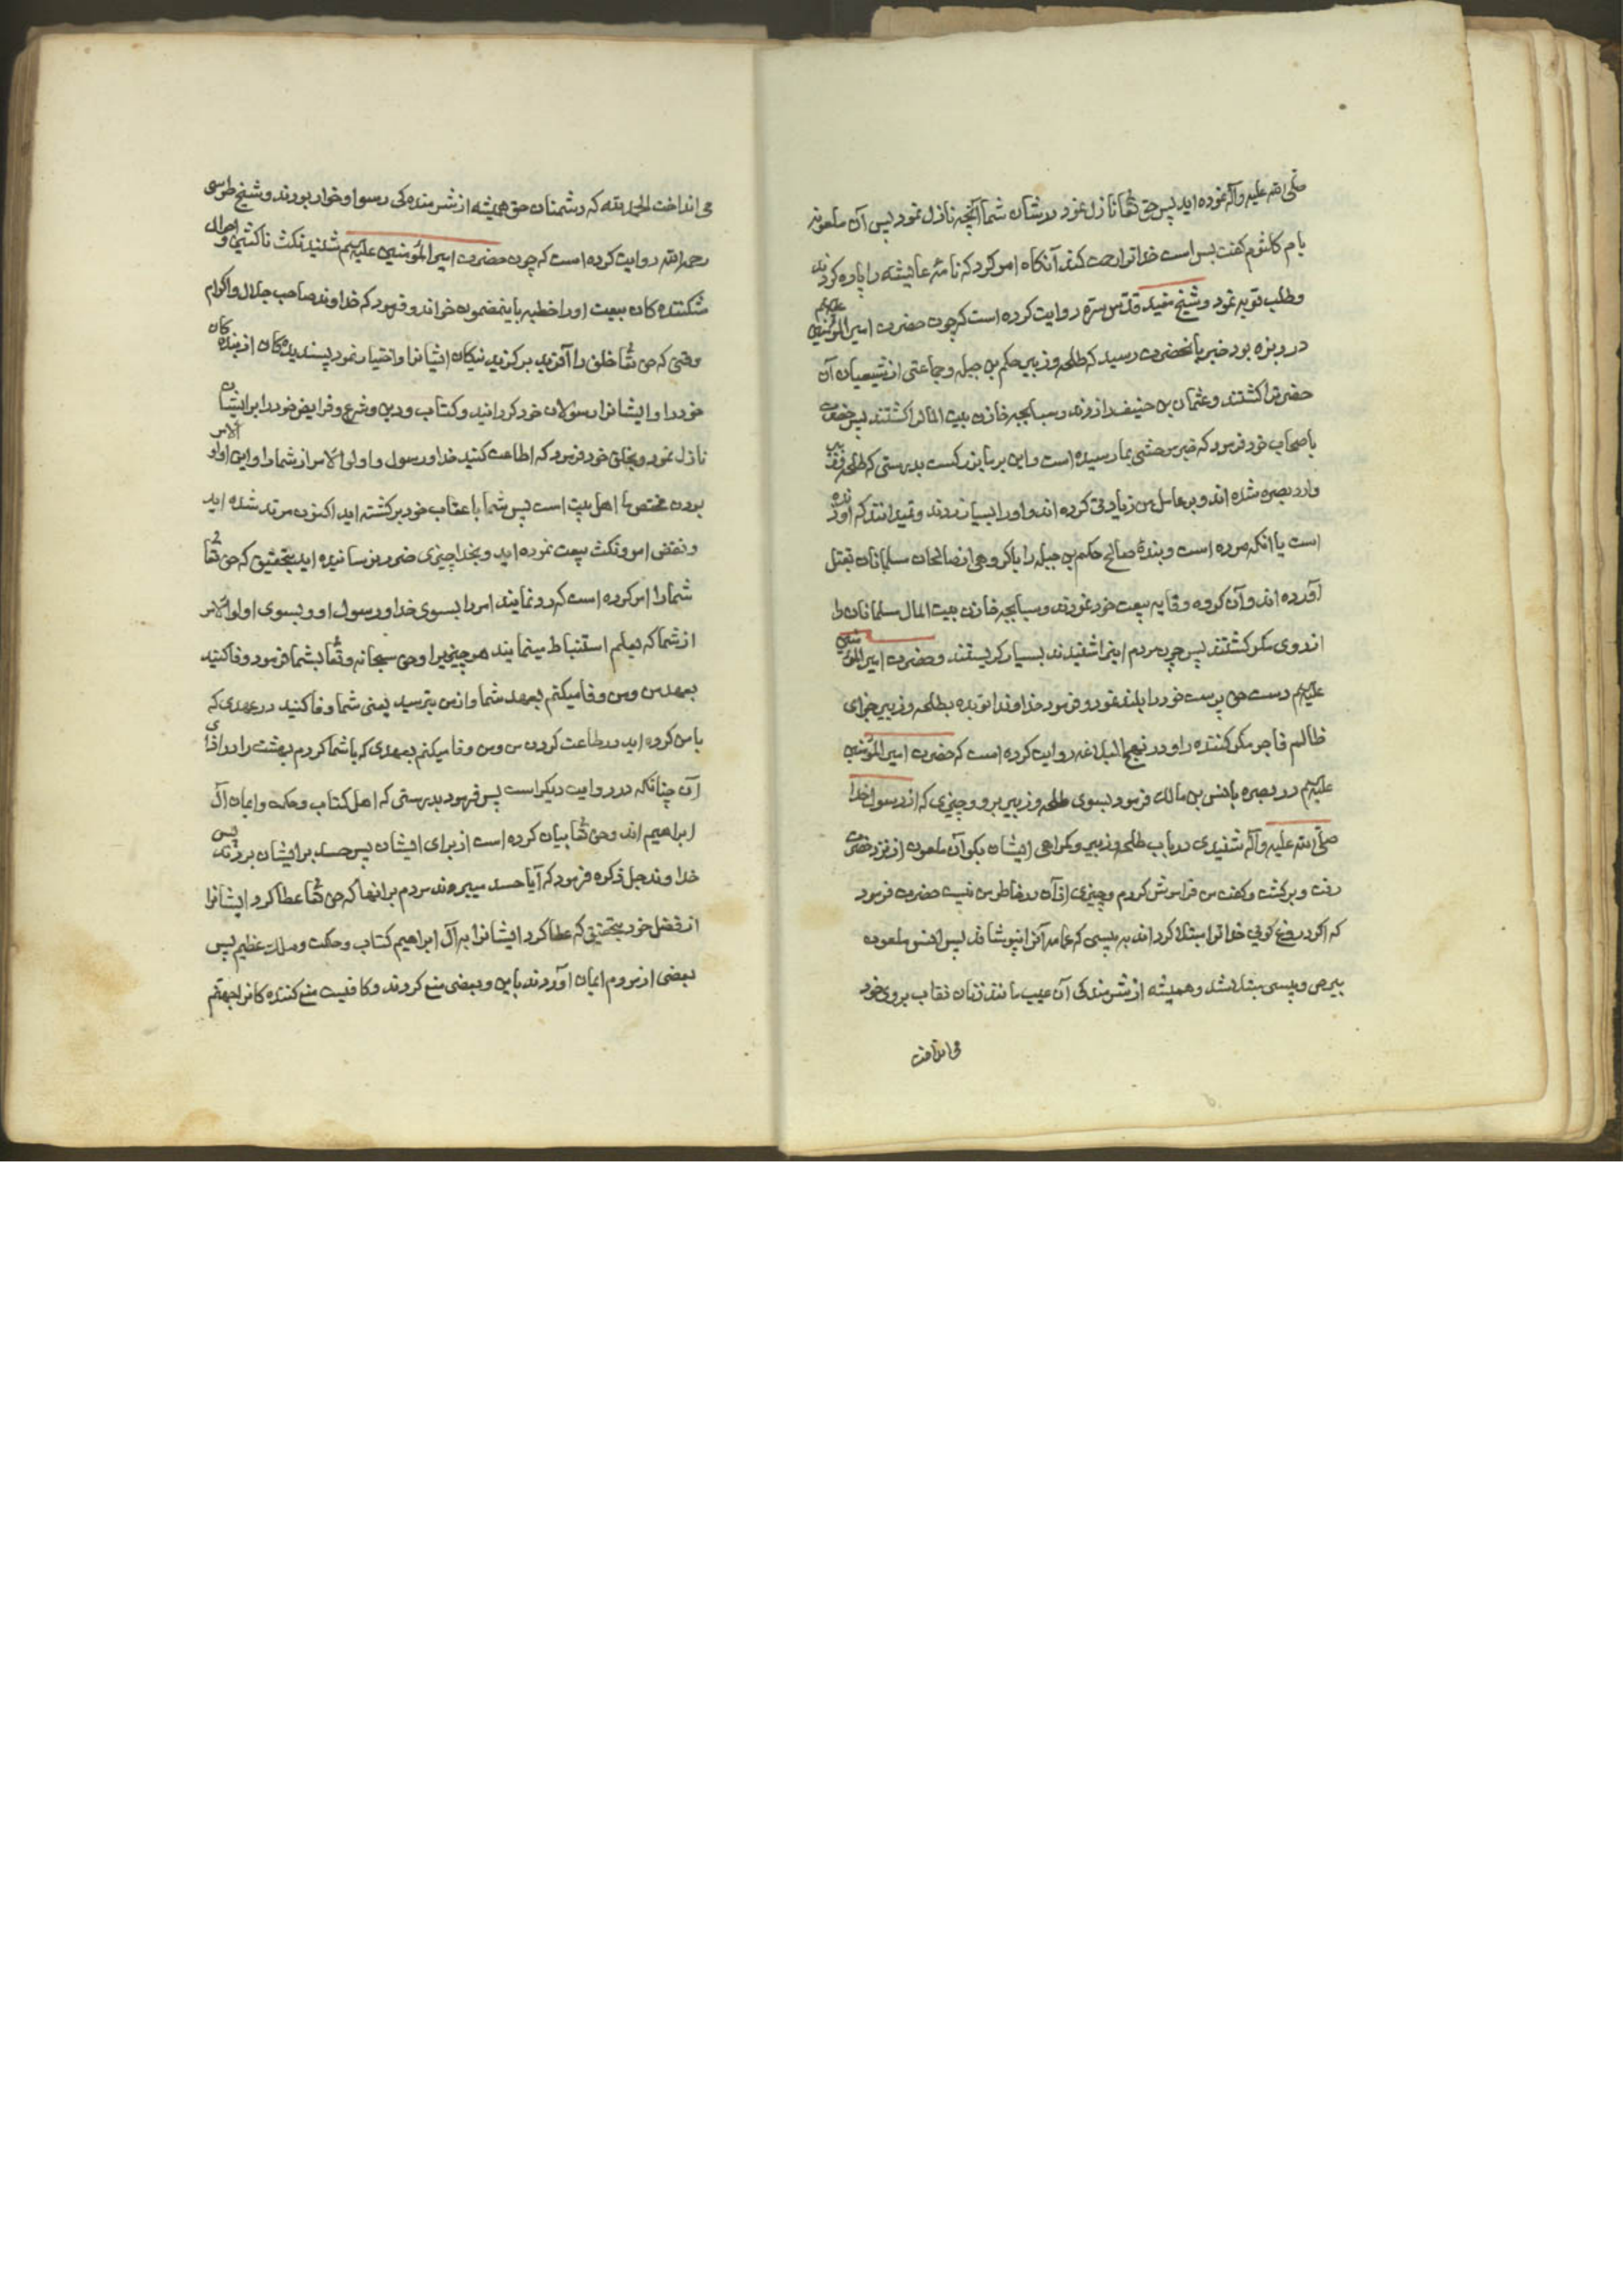 صلی الله علیه وآله نموده اید پس حق تعا نازل نمود در شان شما آنچه نازل نمود پس آن ملعونه
بام کلثوم کفت بس است خدا ترا رحمت کند آنکاه امر کرد که نامهٔ عایشه را پاره کردند
وطلب توبه نمود وشیخ مفید قدس سره روایت کرده است که چون حضرت امیرالمؤمنین علیهم
در ربزه بود خبر بانحضرت رسید که طلحه وزبیر حکم بن جبله وجماعتی از شیعیان آن
حضرترا کشتند وعثمان بن حنیف را زدند وسبابجه خازن بیت المالرا کشتند پس حضرت
باصحاب خود فرمود که خبر موحشی بما رسیده است واین بر ما بزرکست بدرستی که طلحه وزبیر
وارد بصره شده اند وبر عامل من زیادتی کرده اند واورا بسیار زدند ونمیدانند که او زنده
است یا انکه مرده است وبندهٔ صالح حکم بن جبله را با کروهی از صالحان مسلمانان بقتل
آورده اند وآن کروه وفا به بیعت خود نمودند وسبابجه خازن بیت المال مسلمانان را
از روی مکر کشتند پس چون مردم اینرا شنیدند بسیار کریستند وحضرت امیرالمؤمنین
علیهم دست حق پرست خود را بلند نمود وفرمود خداوندا تو بده بطلحه وزبیر جزای
ظالم فاجر مکر کننده را ودر نهج البلاغه روایت کرده است که حضرت امیرالمؤمنین
علیهم در بصره بانس بن مالک فرمود بسوی طلحه وزبیر برو وچیزی که از رسول خدا
صلی الله علیه وآله شنیدی در باب طلحه وزبیر وکمراهی ایشان بکو آن ملعون از نزد حضرت
رفت وبرکشت وکفت من فراموش کردم وچیزی از آن در خاطر من نیست حضرت فرمود
که اکر دروغ کویی خدا ترا مبتلا کرداند به پیسی که عمامه آنرا نپوشاند پس انس ملعون
ببرص وپیسی مبتلا شد وهمیشه از شرمندکی آن عیب مانند زنان نقاب بروی خود
می انداخت
می انداخت الحمد لله که دشمنان حق همیشه از شرمنده کی رسوا وخوار بودند وشیخ طوسی
رحمه الله روایت کرده است که چون حضرت امیرالمؤمنین علیهم شنید نکث ناکثین واحوال
شکننده کان بیعت اورا خطبه باینمضمون خواند وفرمود که خداوند صاحب جلال واکرام
وقتی که حق تعا خلق را آفرید برکزید نیکان ایشانرا واختیار نمود پسندیده کان از بنده کان
خود را وایشانرا رسولان خود کردانید وکتاب ودین وشرع وفرایض خود را بر ایشان
نازل نمود وبخلق خود فرمود که اطاعت کنید خدا ورسول واولو الامر از شما را واین اولو الامر
بودن مختص ما اهل بیت است پس شما باعقاب خود برکشته اید اکنون مرتد شده اید
ونقض امر ونکث بیعت نموده اید وبخدا چیزی ضرر نرسانیده اید بتحقیق که حق تعا
شما را امر کرده است که رد نمایند امر را بسوی خدا ورسول او وبسوی اولوالامر
از شما که بعلم استنباط مینمایند هر چیزیرا وحق سبحانه وتعا بشما فرمود وفا کنید
بعهد من ومن وفا میکنم بعهد شما واز من بترسید یعنی شما وفا کنید در عهدی که
با من کرده اید در طاعت کردن من ومن وفا میکنم بعهدی که با شما کردم بهشت را در ازای
آن چنانکه در روایت دیکر است پس فرمود بدرستی که اهل کتاب وحکمت وایمان آل
ابراهیم اند وحق تعا بیان کرده است از برای ایشان پس حسد بر ایشان بردند پس
خداوند جل ذکره فرمود که آیا حسد میبردند مردم بر انها که حق تعا عطا کرد ایشانرا
از فضل خود بتحقیق که عطا کرد ایشانرا به آل ابراهیم کتاب وحکمت وملک عظیم پس
بعضی از مردم ایمان آوردند باین وبعضی منع کردند وکافیست منع کننده کانرا جهنم